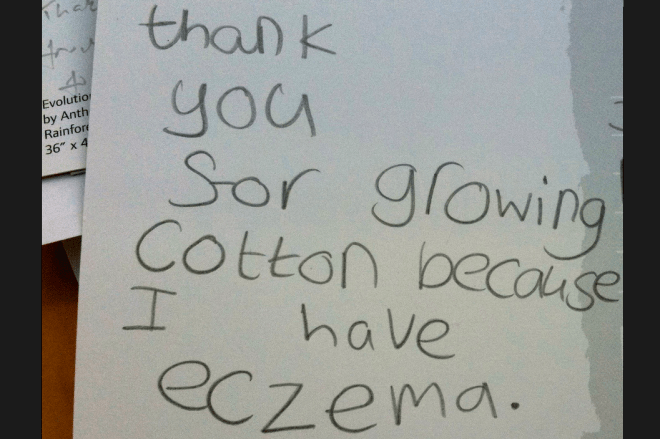 thank
you
for growing
Cotton because
I have
eczema.
Evolutio
by Anth
Rainfor
36" x 4